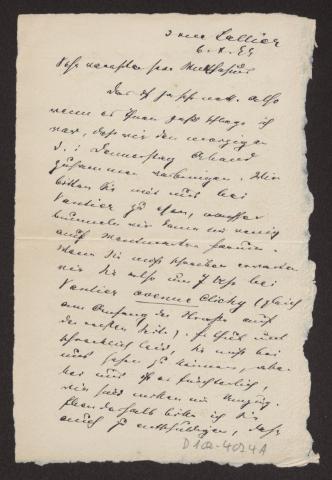 3 rue Tellier
6. X. 99
Sehr verehrter Herr
Das ist ja sehr nett. Also
wenn es Ihnen paßt schlage ich
vor, daß wir den morgigen
d. i. Donnerstag Abend
zusammen verbringen. Wir
bitten Sie mit uns bei
zu essen, nachher
bummeln wir dann ein wenig
auf Montmartre herum.
Wenn Sie nicht schreiben erwarten
wir Sie also um 7 Uhr bei
avenue Clichy (gleich
am Anfang der Straße auf
der rechten Seite). Es thut uns
schrecklich leid, Sie nicht bei
uns sehen zu können, aber
bei uns ist es fürchterlich,
wir sind mitten im Umzug.
Ebendeshalb bitte ich Sie
auch zu entschuldigen, daß
D 102-4094A